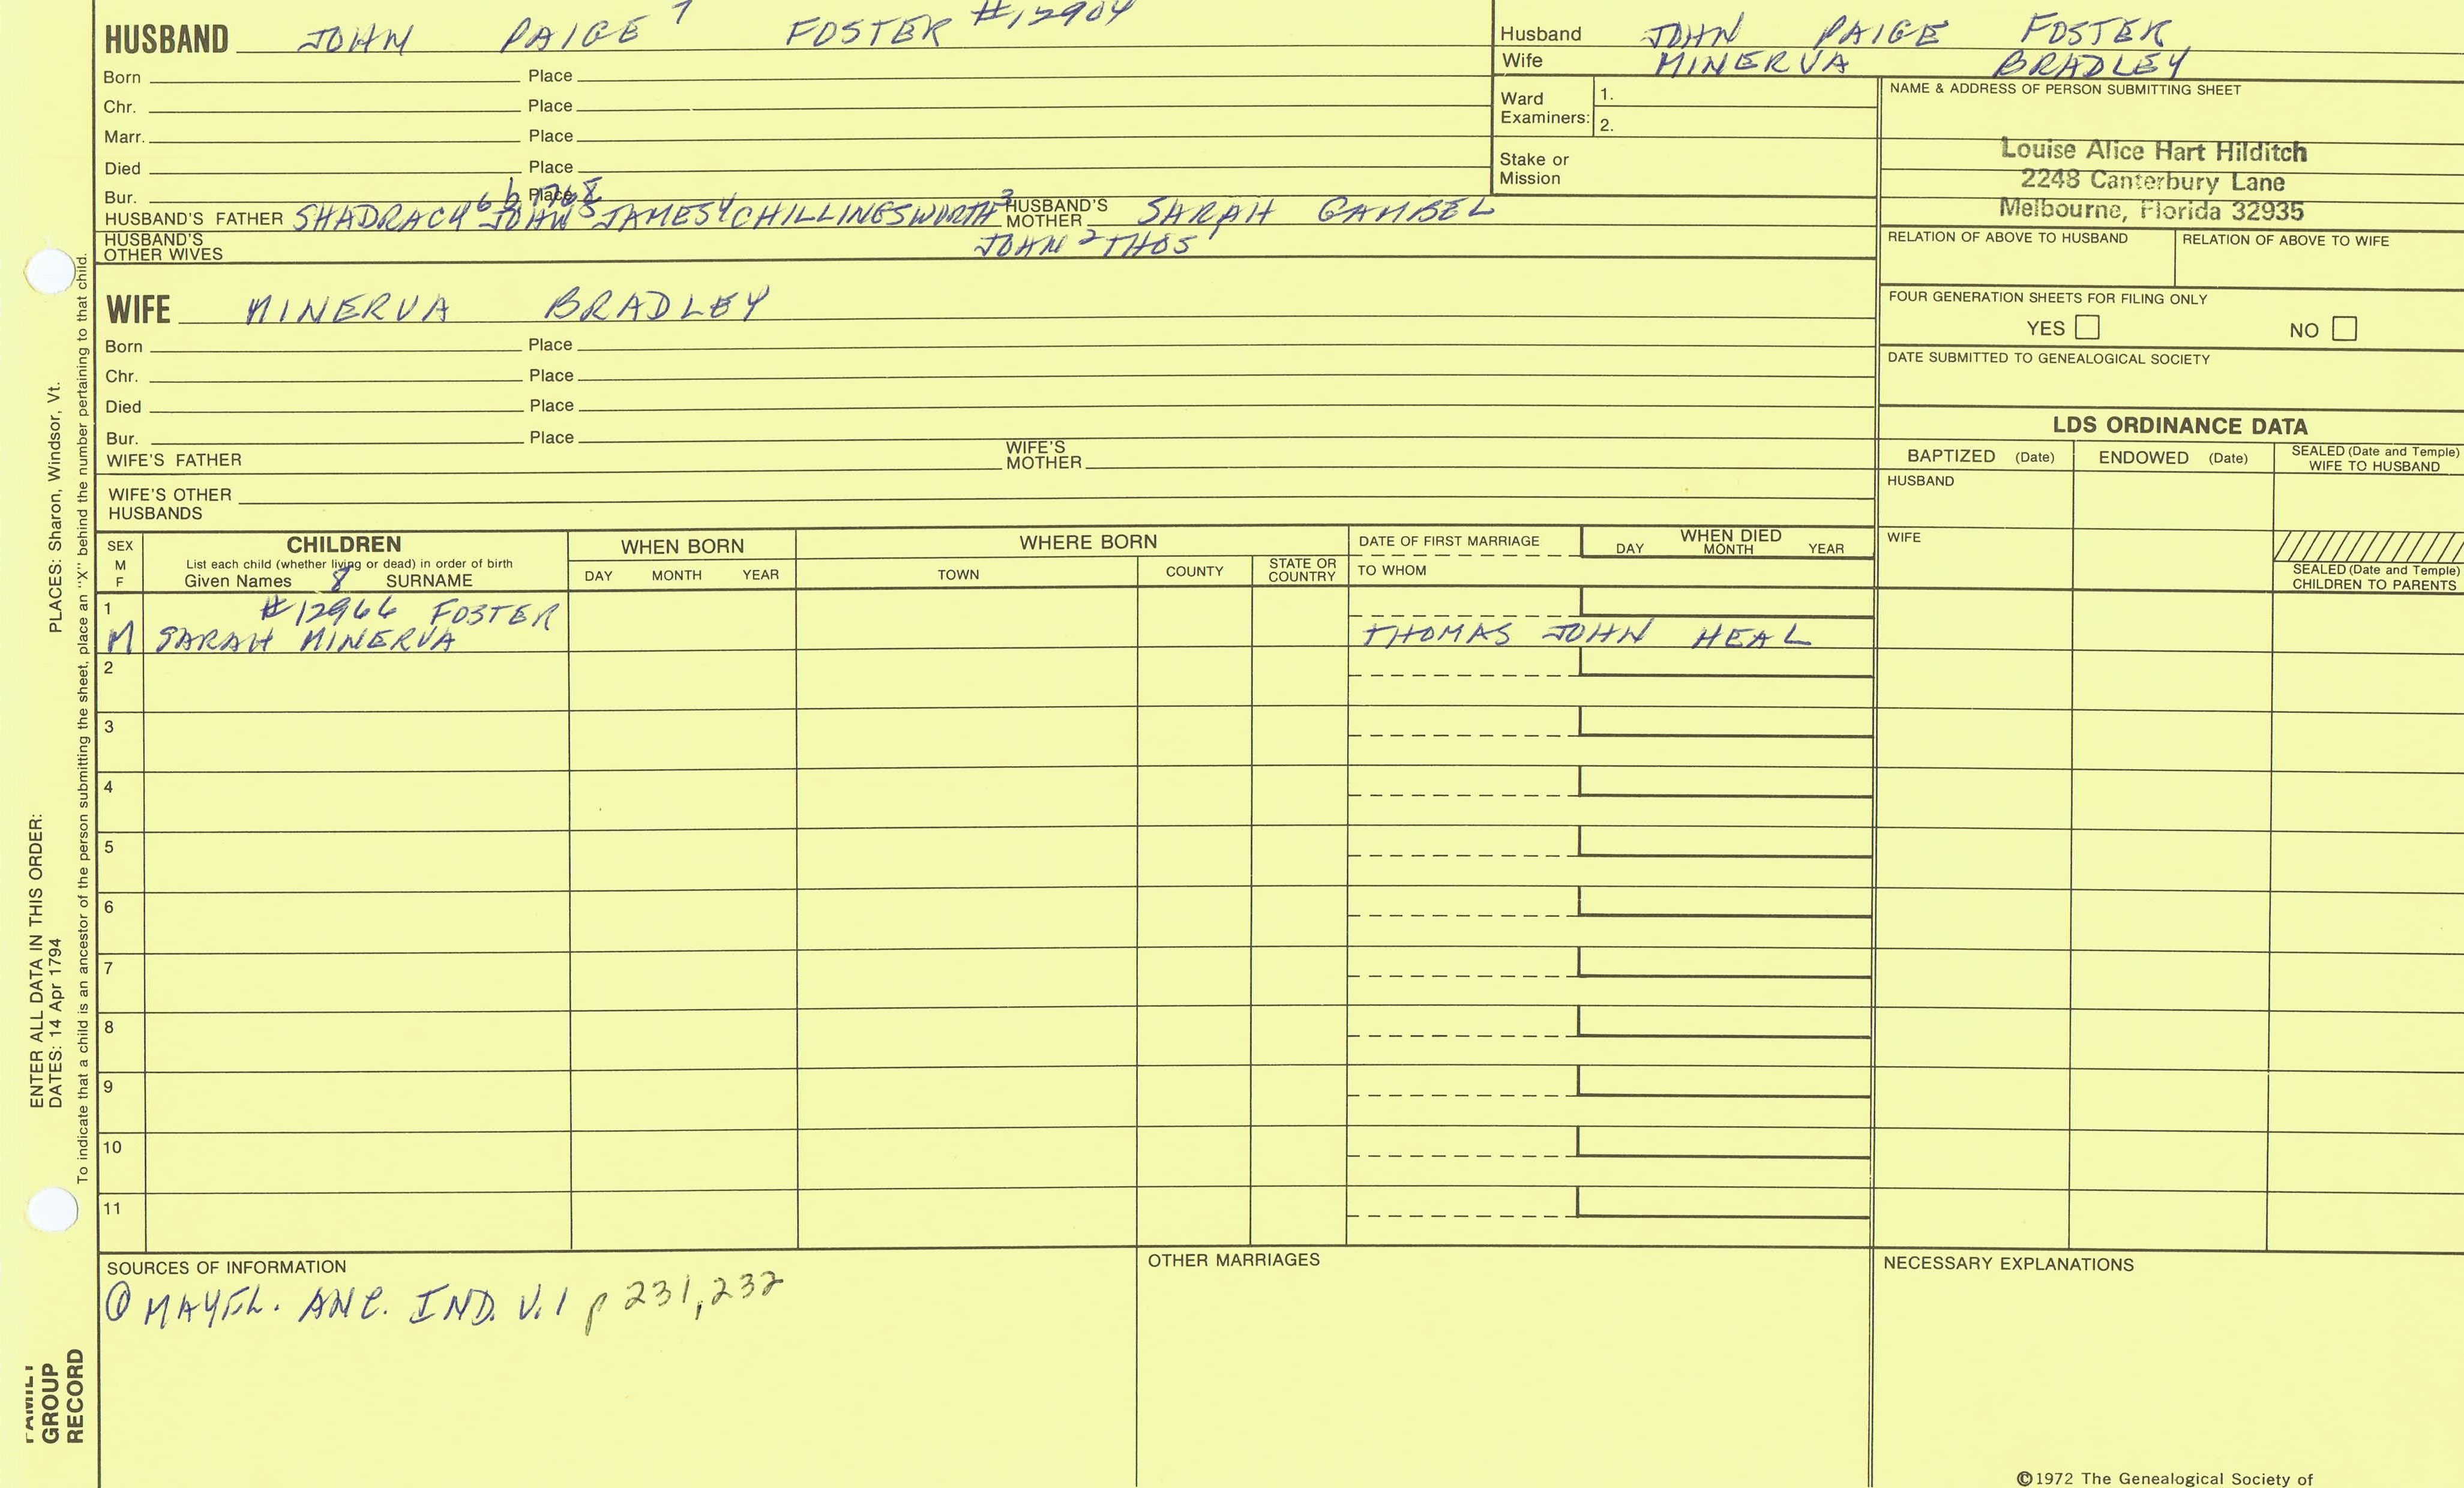 HUSBAND JOHN PAIGE 7 FOSTER #12904
Born Place
Chr. Place
Marr. Place
Died Place
Bur. Place
6 b 1768
HUSBAND'S FATHER SHADRACH JOHN 5 JAMES 4 CHILLINGSWORTH 3 HUSBAND'S MOTHER SARAH GAMBEL
HUSBAND'S OTHER WIVES JOHN 2 THOS 1
Husband JOHN PAIGE FOSTER
Wife MINERVA BRADLEY
Ward Examiners: 1.
2.
Stake or Mission
NAME & ADDRESS OF PERSON SUBMITTING SHEET
Louise Alice Hart Hilditch
2248 Canterbury Lane
Melbourne, Florida 32935
RELATION OF ABOVE TO HUSBAND RELATION OF ABOVE TO WIFE
FOUR GENERATION SHEETS FOR FILING ONLY
YES NO
DATE SUBMITTED TO GENEALOGICAL SOCIETY
WIFE MINERVA BRADLEY
Born Place
Chr. Place
Died Place
Bur. Place
WIFE'S FATHER WIFE'S MOTHER
WIFE'S OTHER HUSBANDS
LDS ORDINANCE DATA
BAPTIZED (Date) ENDOWED (Date) SEALED (Date and Temple) WIFE TO HUSBAND
HUSBAND
WIFE
SEALED (Date and Temple) CHILDREN TO PARENTS
SEX M F
CHILDREN
List each child (whether living or dead) in order of birth
Given Names 8 SURNAME
WHEN BORN
DAY MONTH YEAR
WHERE BORN
TOWN COUNTY STATE OR COUNTRY
DATE OF FIRST MARRIAGE
TO WHOM
WHEN DIED
DAY MONTH YEAR
1 #12966 FOSTER
M SARAH MINERVA THOMAS JOHN HEAL
2
3
4
5
6
7
8
9
10
11
SOURCES OF INFORMATION
① MAYFL. ANC. IND. V.1 p 231,232
OTHER MARRIAGES
NECESSARY EXPLANATIONS
©1972 The Genealogical Society of
ENTER ALL DATA IN THIS ORDER:
DATES: 14 Apr 1794 PLACES: Sharon, Windsor, Vt.
To indicate that a child is an ancestor of the person submitting the sheet, place an "X" behind the number pertaining to that child.
FAMILY
GROUP
RECORD